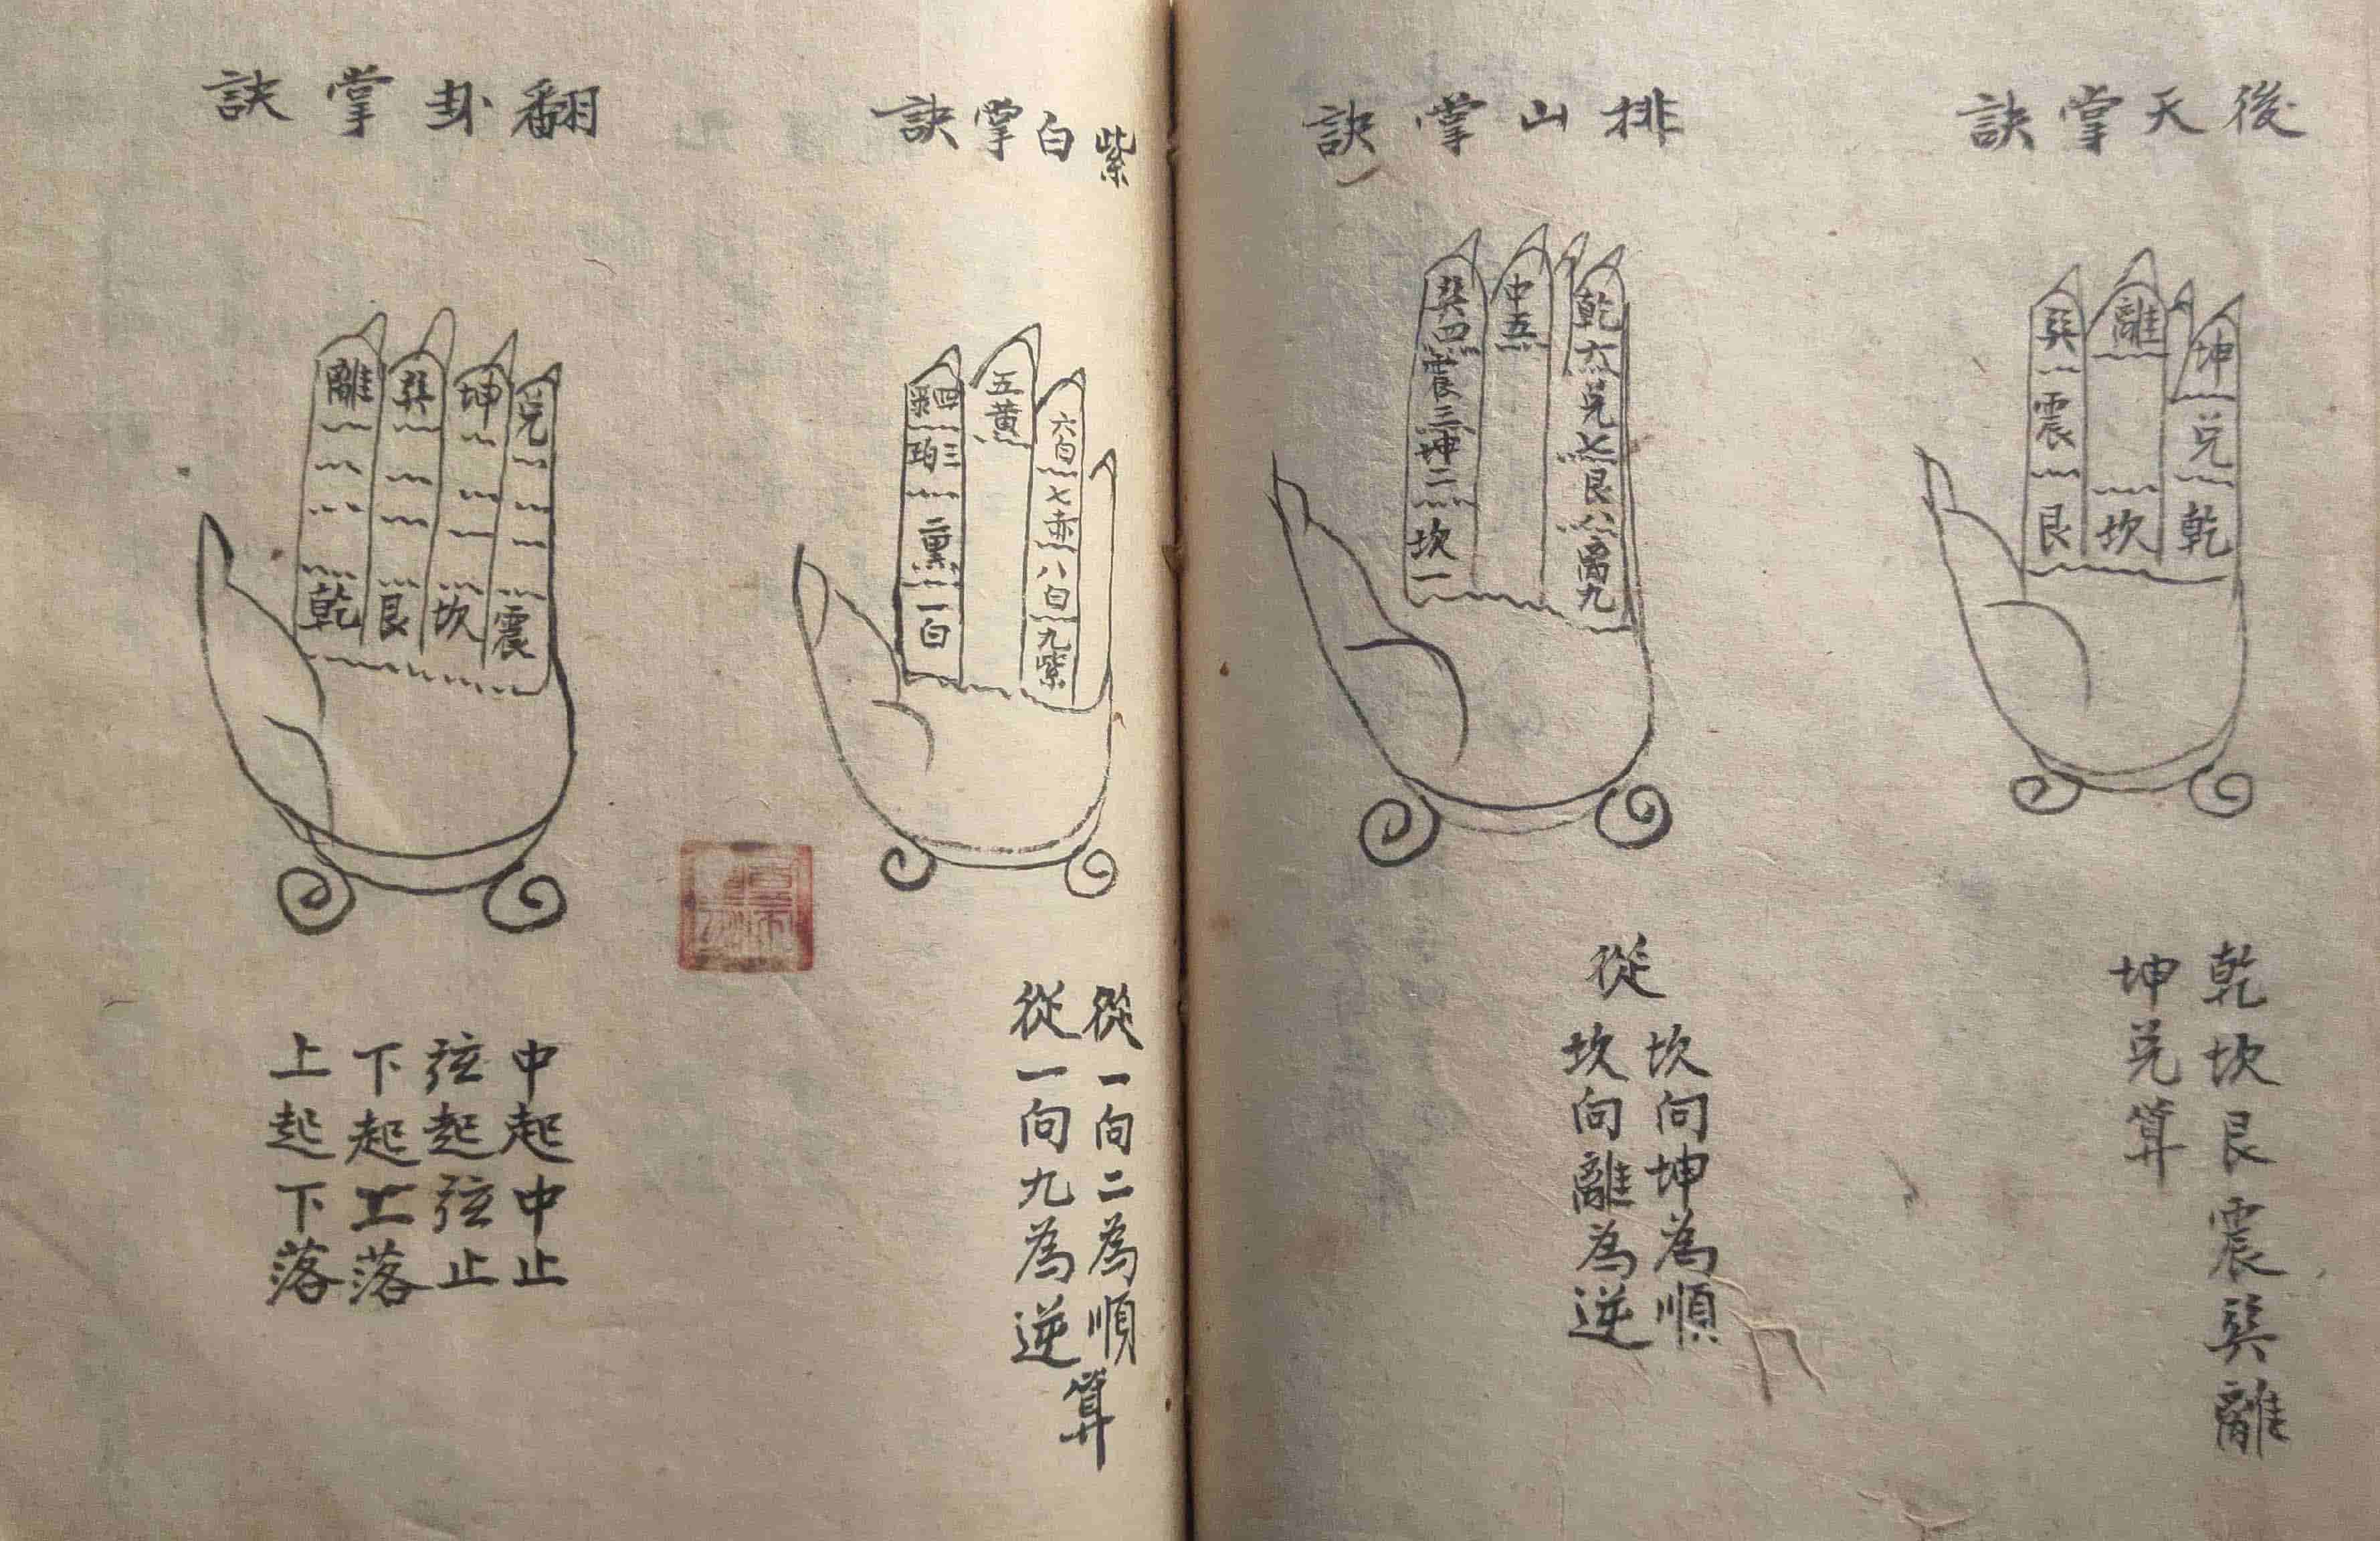 後天掌訣
巽
震
艮
離
坎
坤
兌
乾
乾坎艮震巽離
坤兌算
排山掌訣
巽四
震三
坤二
坎一
中五
乾六
兌七
艮八
离九
從
坎向坤為順
坎向離為逆
紫白掌訣
四綠
三珀
二黑
一白
五黃
六白
七赤
八白
九紫
從一向二為順
從一向九為逆
算
翻卦掌訣
離
乾
巽
艮
坤
坎
兌
震
中起中止
弦起弦止
下起上落
上起下落